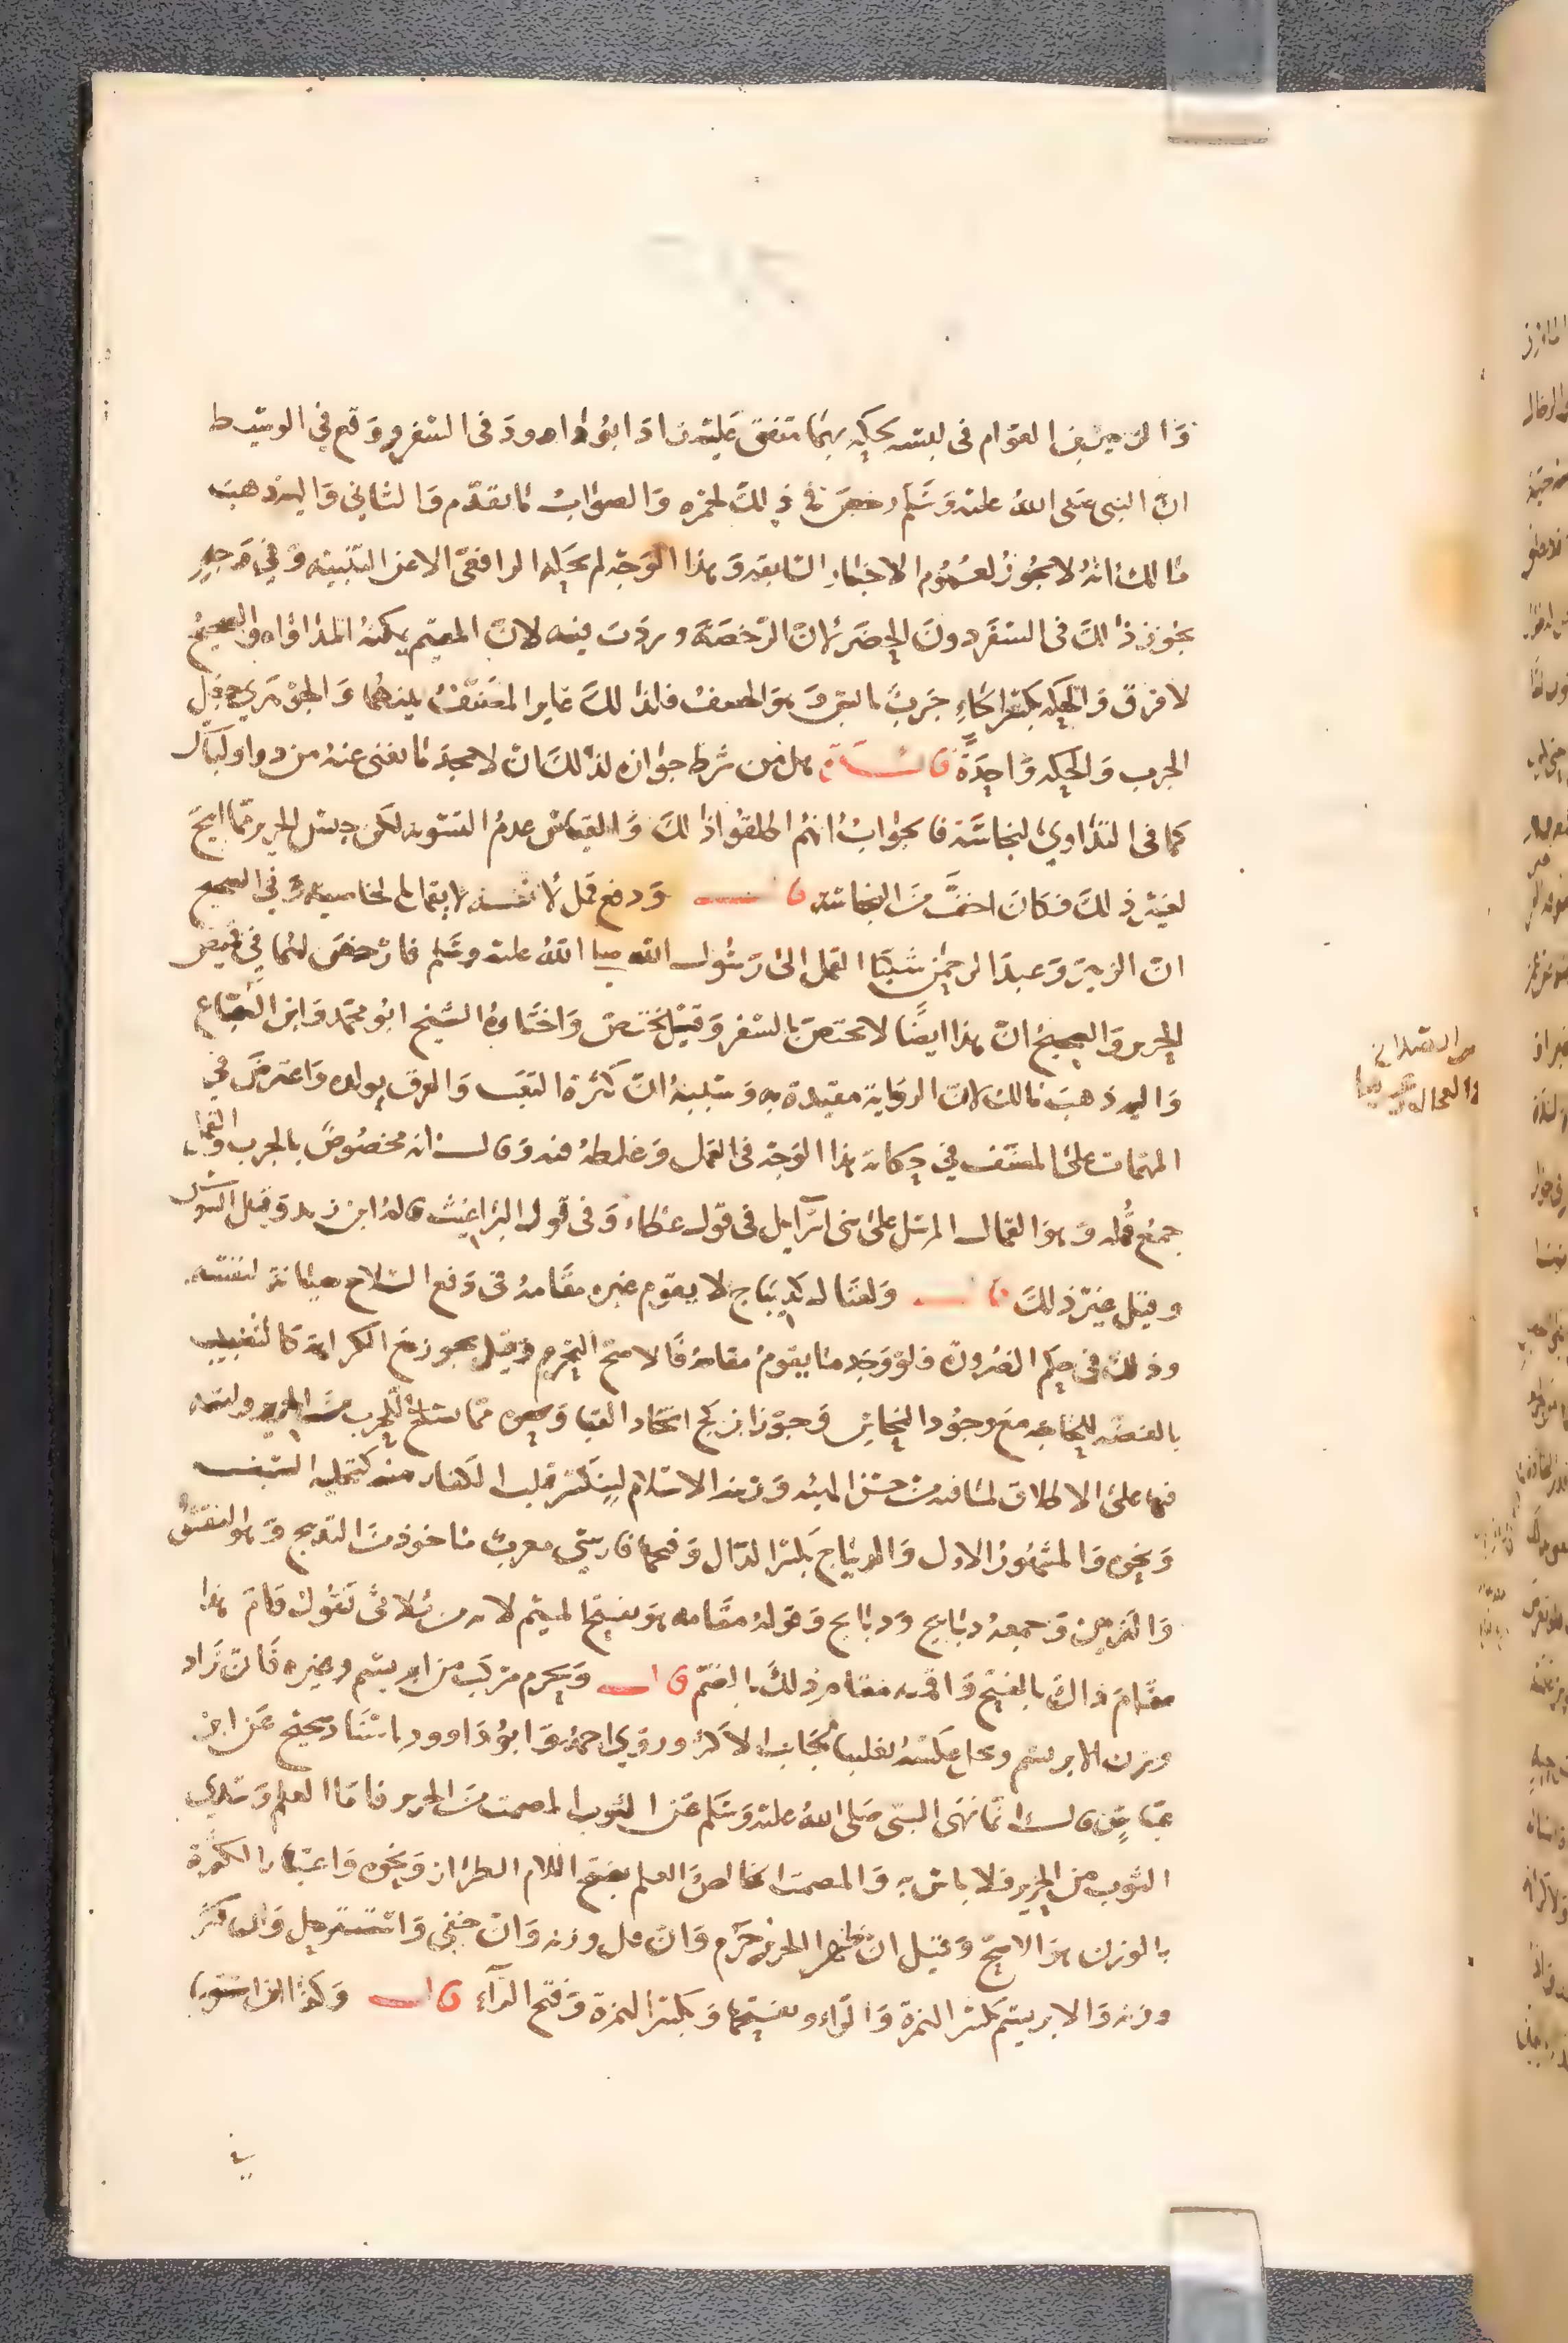 والزبير بن العوام في لبسه لحكة بهما متفق عليه زاد ابو داود في السفر ووقع في الوسيط
ان النبي صلى الله عليه وسلم رخص في ذلك لحمزه والصواب ما تقدم والثاني واليه ذهب
مالك انه لا يجوز لعموم الاخبار السابقه وهذا الوجه لم يحكه الرافعي الا عن التنبيه وفي وجه
يجوز ذلك في السفر دون الحضر لان الرخصة وردت فيه لان المقيم يمكنه المداواه والصحيح
لا فرق والحكه بكسر الحاء جرب يابس وهو الحصف فلذلك غاير المصنف بينهما والجوهري جعل
الجرب والحكه واحدة فان هل من شرط جوازه لذلك ان لا يجد ما يغني عنه من دواء ولباس
كما في التداوي بنجاسة فالجواب انهم اطلقوا ذلك والقياس عدم التسويه لكن جنس الحرير مما ابيح
لغير ذلك فكان اخف من النجاسة قال ودفع قمل لانه لا يقمل لخاصيه وفي الصحيح
ان الزبير وعبد الرحمن شكيا القمل الى رسول الله صلى الله عليه وسلم فارخص لهما في قميص
الحرير والصحيح ان هذا ايضا لا يختص بالسفر وقيل يختص واختاره الشيخ ابو محمد وابن الصلاح
واليه ذهب مالك لان الرواية مقيدة به وسببه ان كثرة التعب والعرق يولده واعترض في
المهمات على المصنف في حكاية هذا الوجه في القمل وغلطه فيه وقال انه مخصوص بالجرب والقمل
جمع قمله وهو القمال المرسل على بني اسرائيل في قول عطاء وفي قول البراغيث قاله ابن زيد وقيل السوس
وقيل غير ذلك قال ولقتال كديباج لا يقوم غيره مقامه في دفع السلاح صيانة لنفسه
وذلك في حكم الضرورة فلو وجد ما يقوم مقامه فالاصح التحريم وقيل يجوز مع الكراهة كالتضبيب
بالفضه للحاجه مع وجود النحاس وجوز ابن كج اتخاذ القبا وغيره مما يصلح للحرب من الحرير ولبسه
فيها على الاطلاق لما فيه من حسن الهيئه وزينة الاسلام لينكسر قلب الكفار منه كتحليه السيف
ونحوه والمشهور الاول والديباج بكسر الدال وفتحها فارسي معرب ماخوذ من التدبيج وهو النقش
والتزيين وجمعه ديابيج ودبابيج وقوله مقامه هو بفتح الميم لانه من ثلاثي تقول قام هذا
مقام ذاك بالفتح واقمته مقام ذلك بالضم قال ويحرم مركب من ابريسم وغيره فان زاد
وزن الابريسم ويحل عكسه تغليبا لجانب الاكثر وروى احمد وابو داوود باسناد صحيح عن ابن
عباس قال انما نهى النبي صلى الله عليه وسلم عن الثوب المصمت من الحرير فاما العلم وسدى
الثوب من الحرير فلا باس به والمصمت الخالص والعلم بفتح اللام الطراز ونحوه واعتبار الكثرة
بالوزن هو الاصح وقيل ان ظهر الحرير حرم وان قل وزنه وان خفي واستتر حل وان كثر
وزنه والابريسم بكسر الهمزة والراء وبفتحهما وبكسر الهمزة وفتح الراء قال وكذا ان استويا